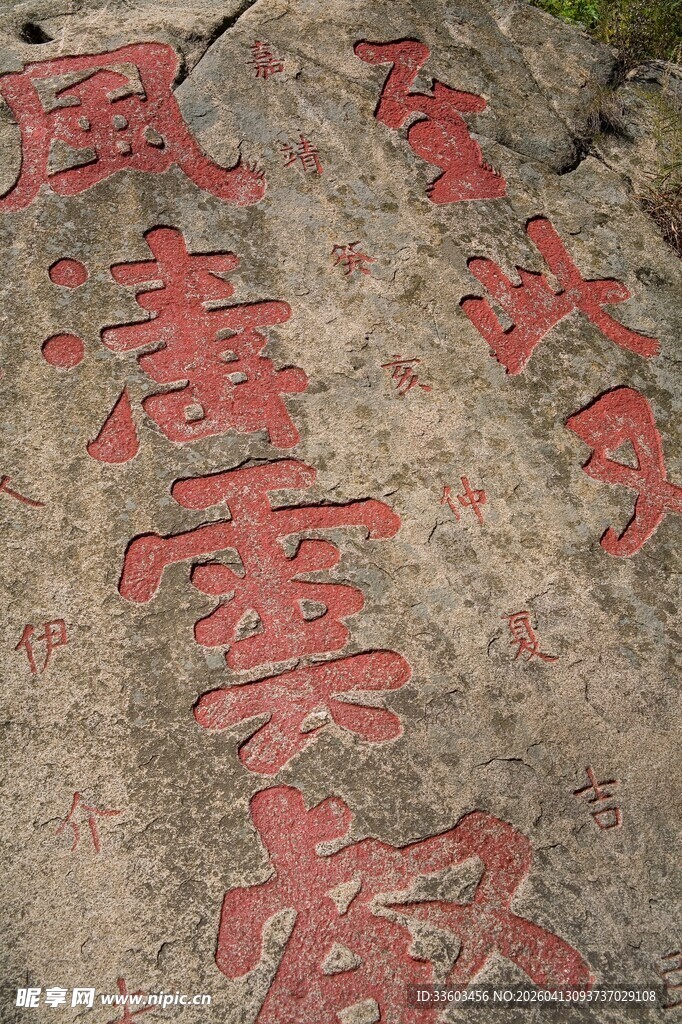 至此又
嘉靖癸亥仲夏吉
風濤雲
伊介
昵享网 www.nipic.cn
ID:33603456 NO:20260413093737029108